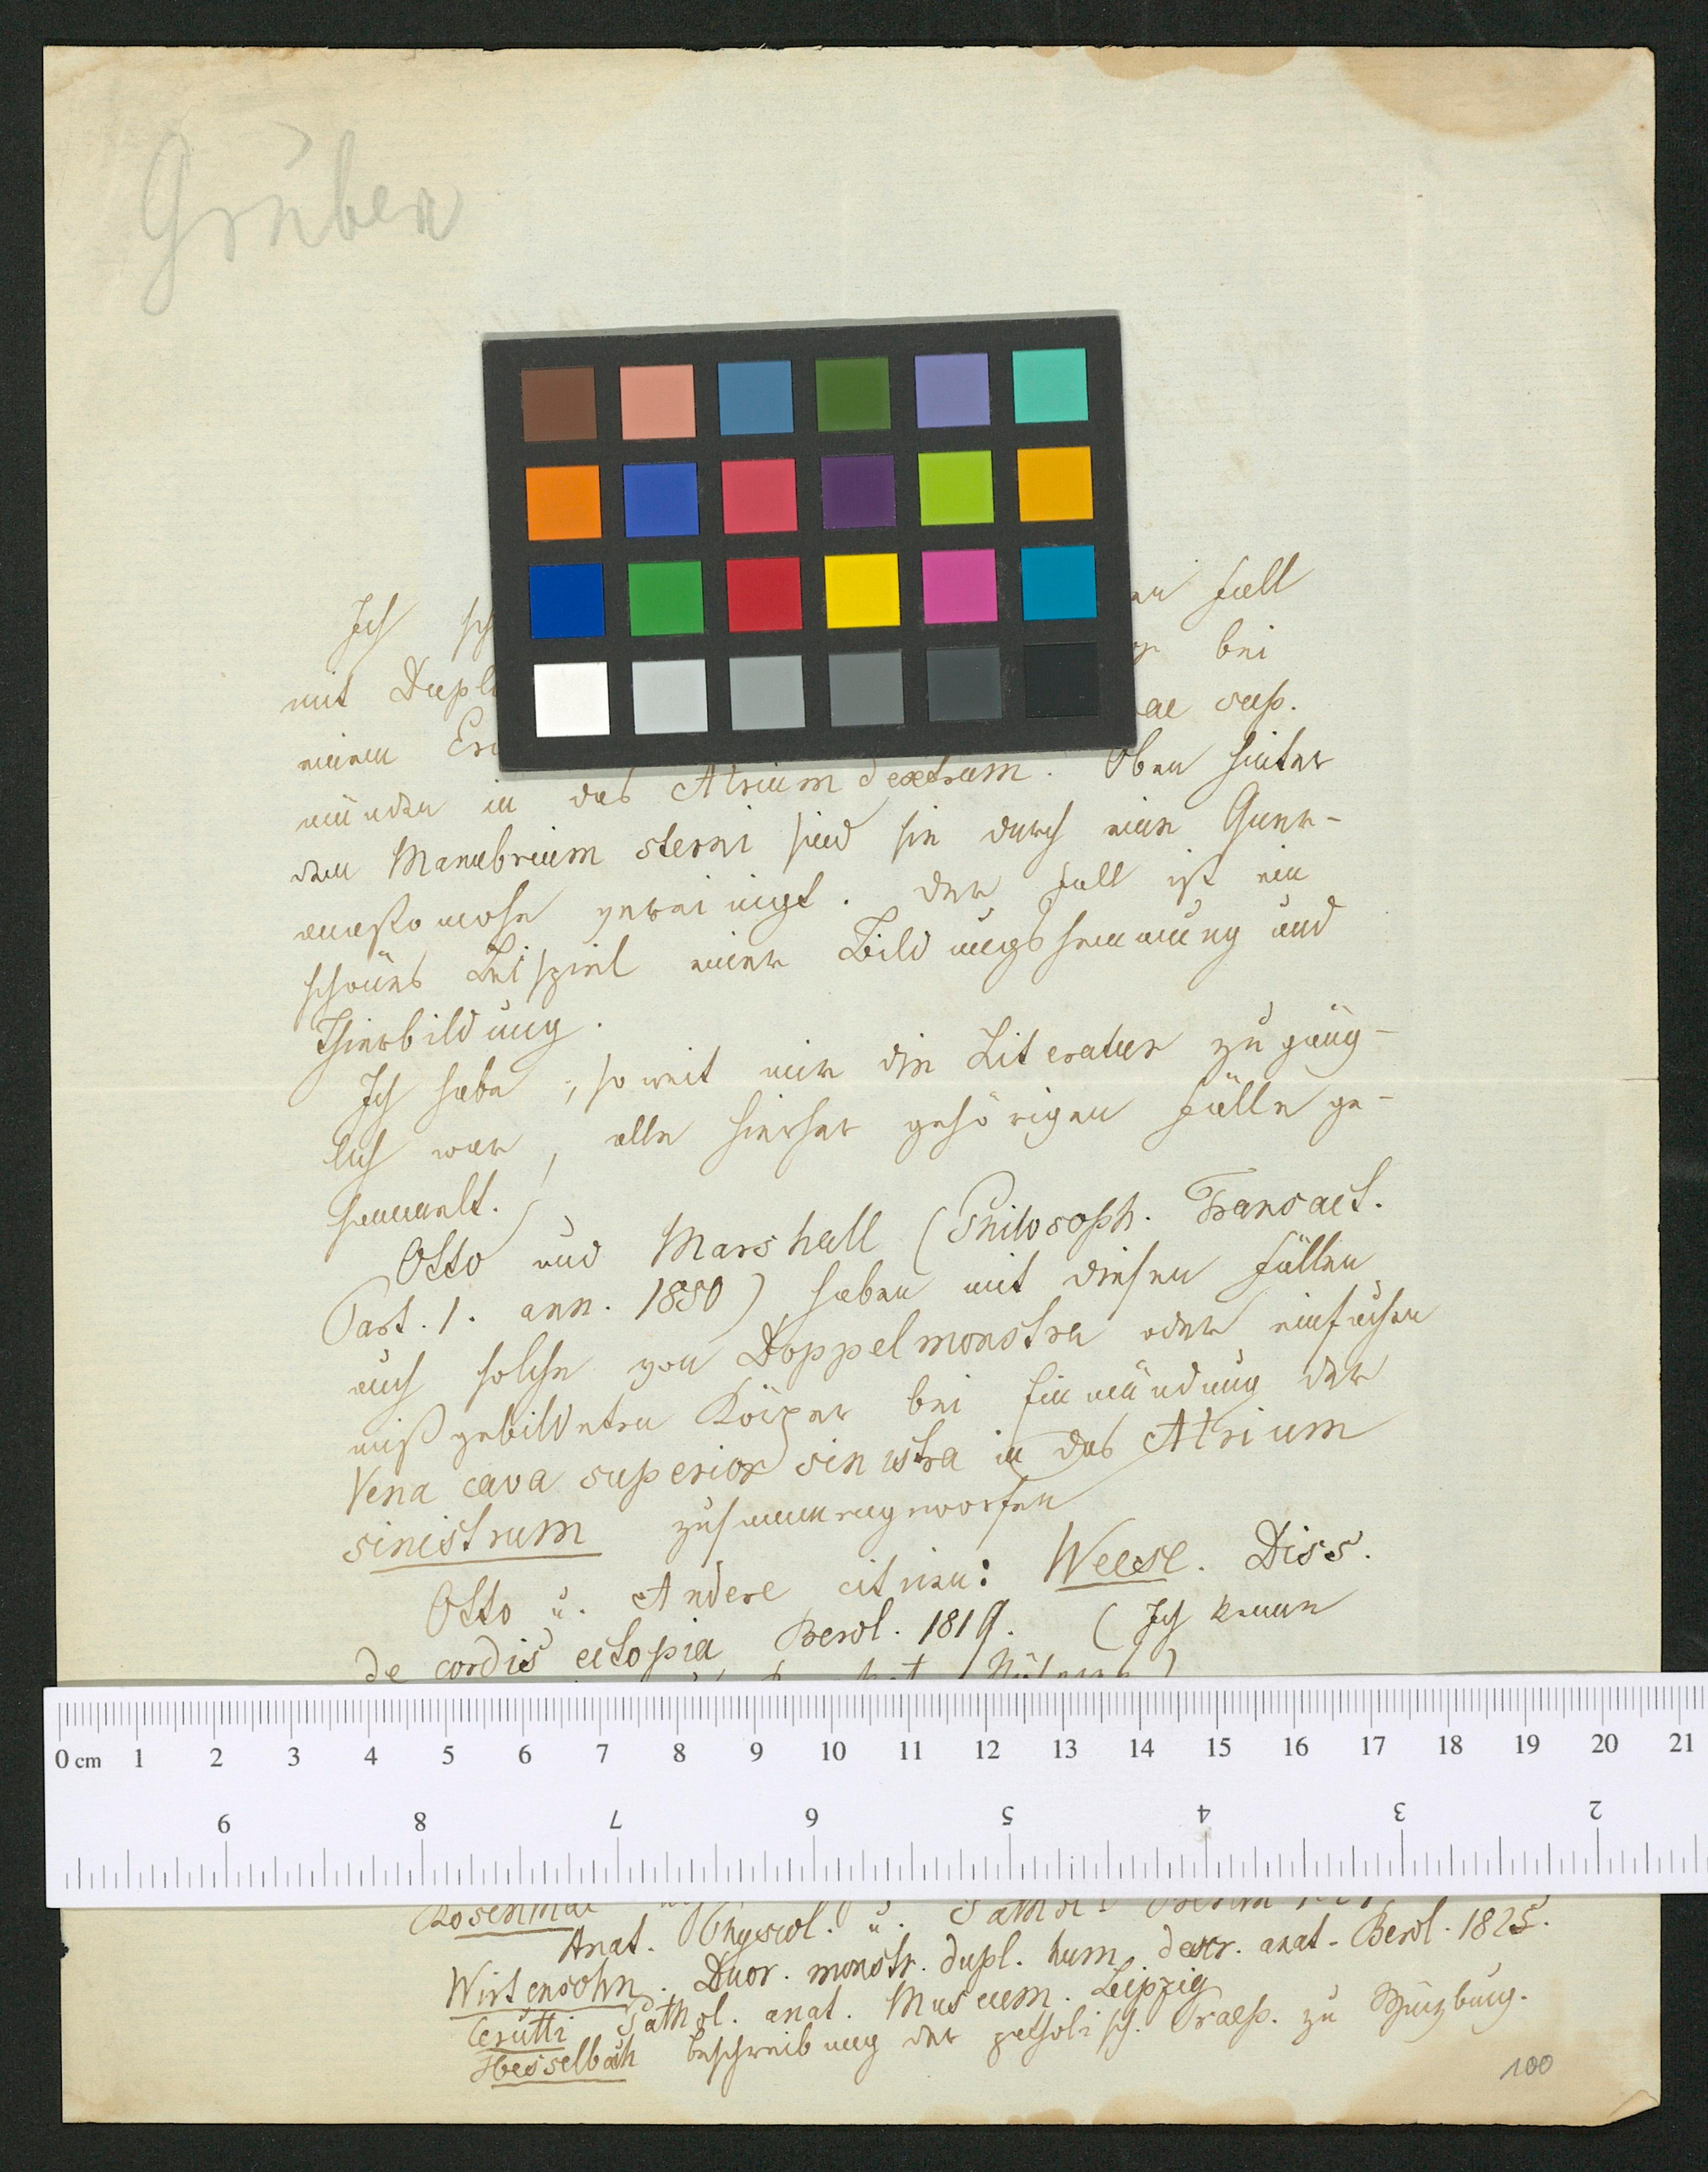 Gruber
Ich sch
Fall
mit Dupli
bei
einem
ae sup.
münden in das Atrium dextrum. Oben hinter
dem Manubrium sterni sind sie durch eine Quer-
anastomose vereinigt. Der Fall ist ein
schönes Beispiel einer Bildungshemmung und
Thierbildung.
Ich habe, soweit mir die Literatur zugäng-
lich war, alle hierher gehörigen Fälle ge-
sammelt.
Otto und Marshall (Philosoph. Transact.
Part. 1. ann. 1850) haben mit diesen Fällen
auch solche von Doppelmonstra oder einfachen
mißgebildeten Körper bei Einmündung der
Vena cava superior sinistra in das Atrium
sinistrum zusammengeworfen
Otto u. Andere citiren: Weese. Diss.
de cordis ectopia Berol. 1819. (Ich kenne
0 cm 1 2 3 4 5 6 7 8 9 10 11 12 13 14 15 16 17 18 19 20 21
9 8 7 6 5 4 3 2
Rosenthal
Anat. Physiol. u. Pathol.
Wirtensohn. Duor. monstr. dupl. hum. descr. anat. Berol. 1825.
Cerutti Pathol. anat. Museum. Leipzig
Hesselbach Beschreibung der patholisch. Praep. zu Würzburg.
100